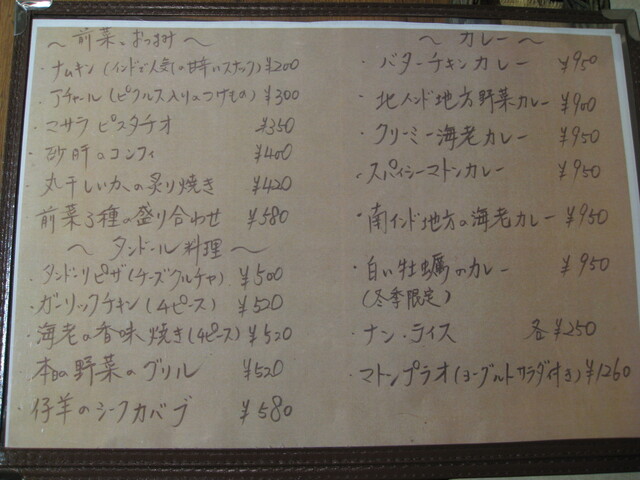 ～ 前菜、おつまみ ～
・ナムキン(インドで人気の甘辛いスナック) ¥200
・アチャール(ピクルス入りのつけもの) ¥300
・マサラ ピスタチオ ¥350
・砂肝のコンフィ ¥400
・丸干しいかの炙り焼き ¥420
・前菜3種の盛り合わせ ¥580
～ タンドール料理 ～
・タンドーリピザ(チーズクルチャ) ¥500
・ガーリックチキン(4ピース) ¥520
・海老の香味焼き(4ピース) ¥520
・本日の野菜のグリル ¥520
・仔羊のシークカバブ ¥580
～ カレー ～
・バターチキンカレー ¥950
・北インド地方野菜カレー ¥900
・クリーミー海老カレー ¥950
・スパイシーマトンカレー ¥950
・南インド地方の海老カレー ¥950
・白い牡蠣のカレー ¥950
(冬季限定)
・ナン・ライス 各¥250
・マトンプラオ(ヨーグルトサラダ付き) ¥1260